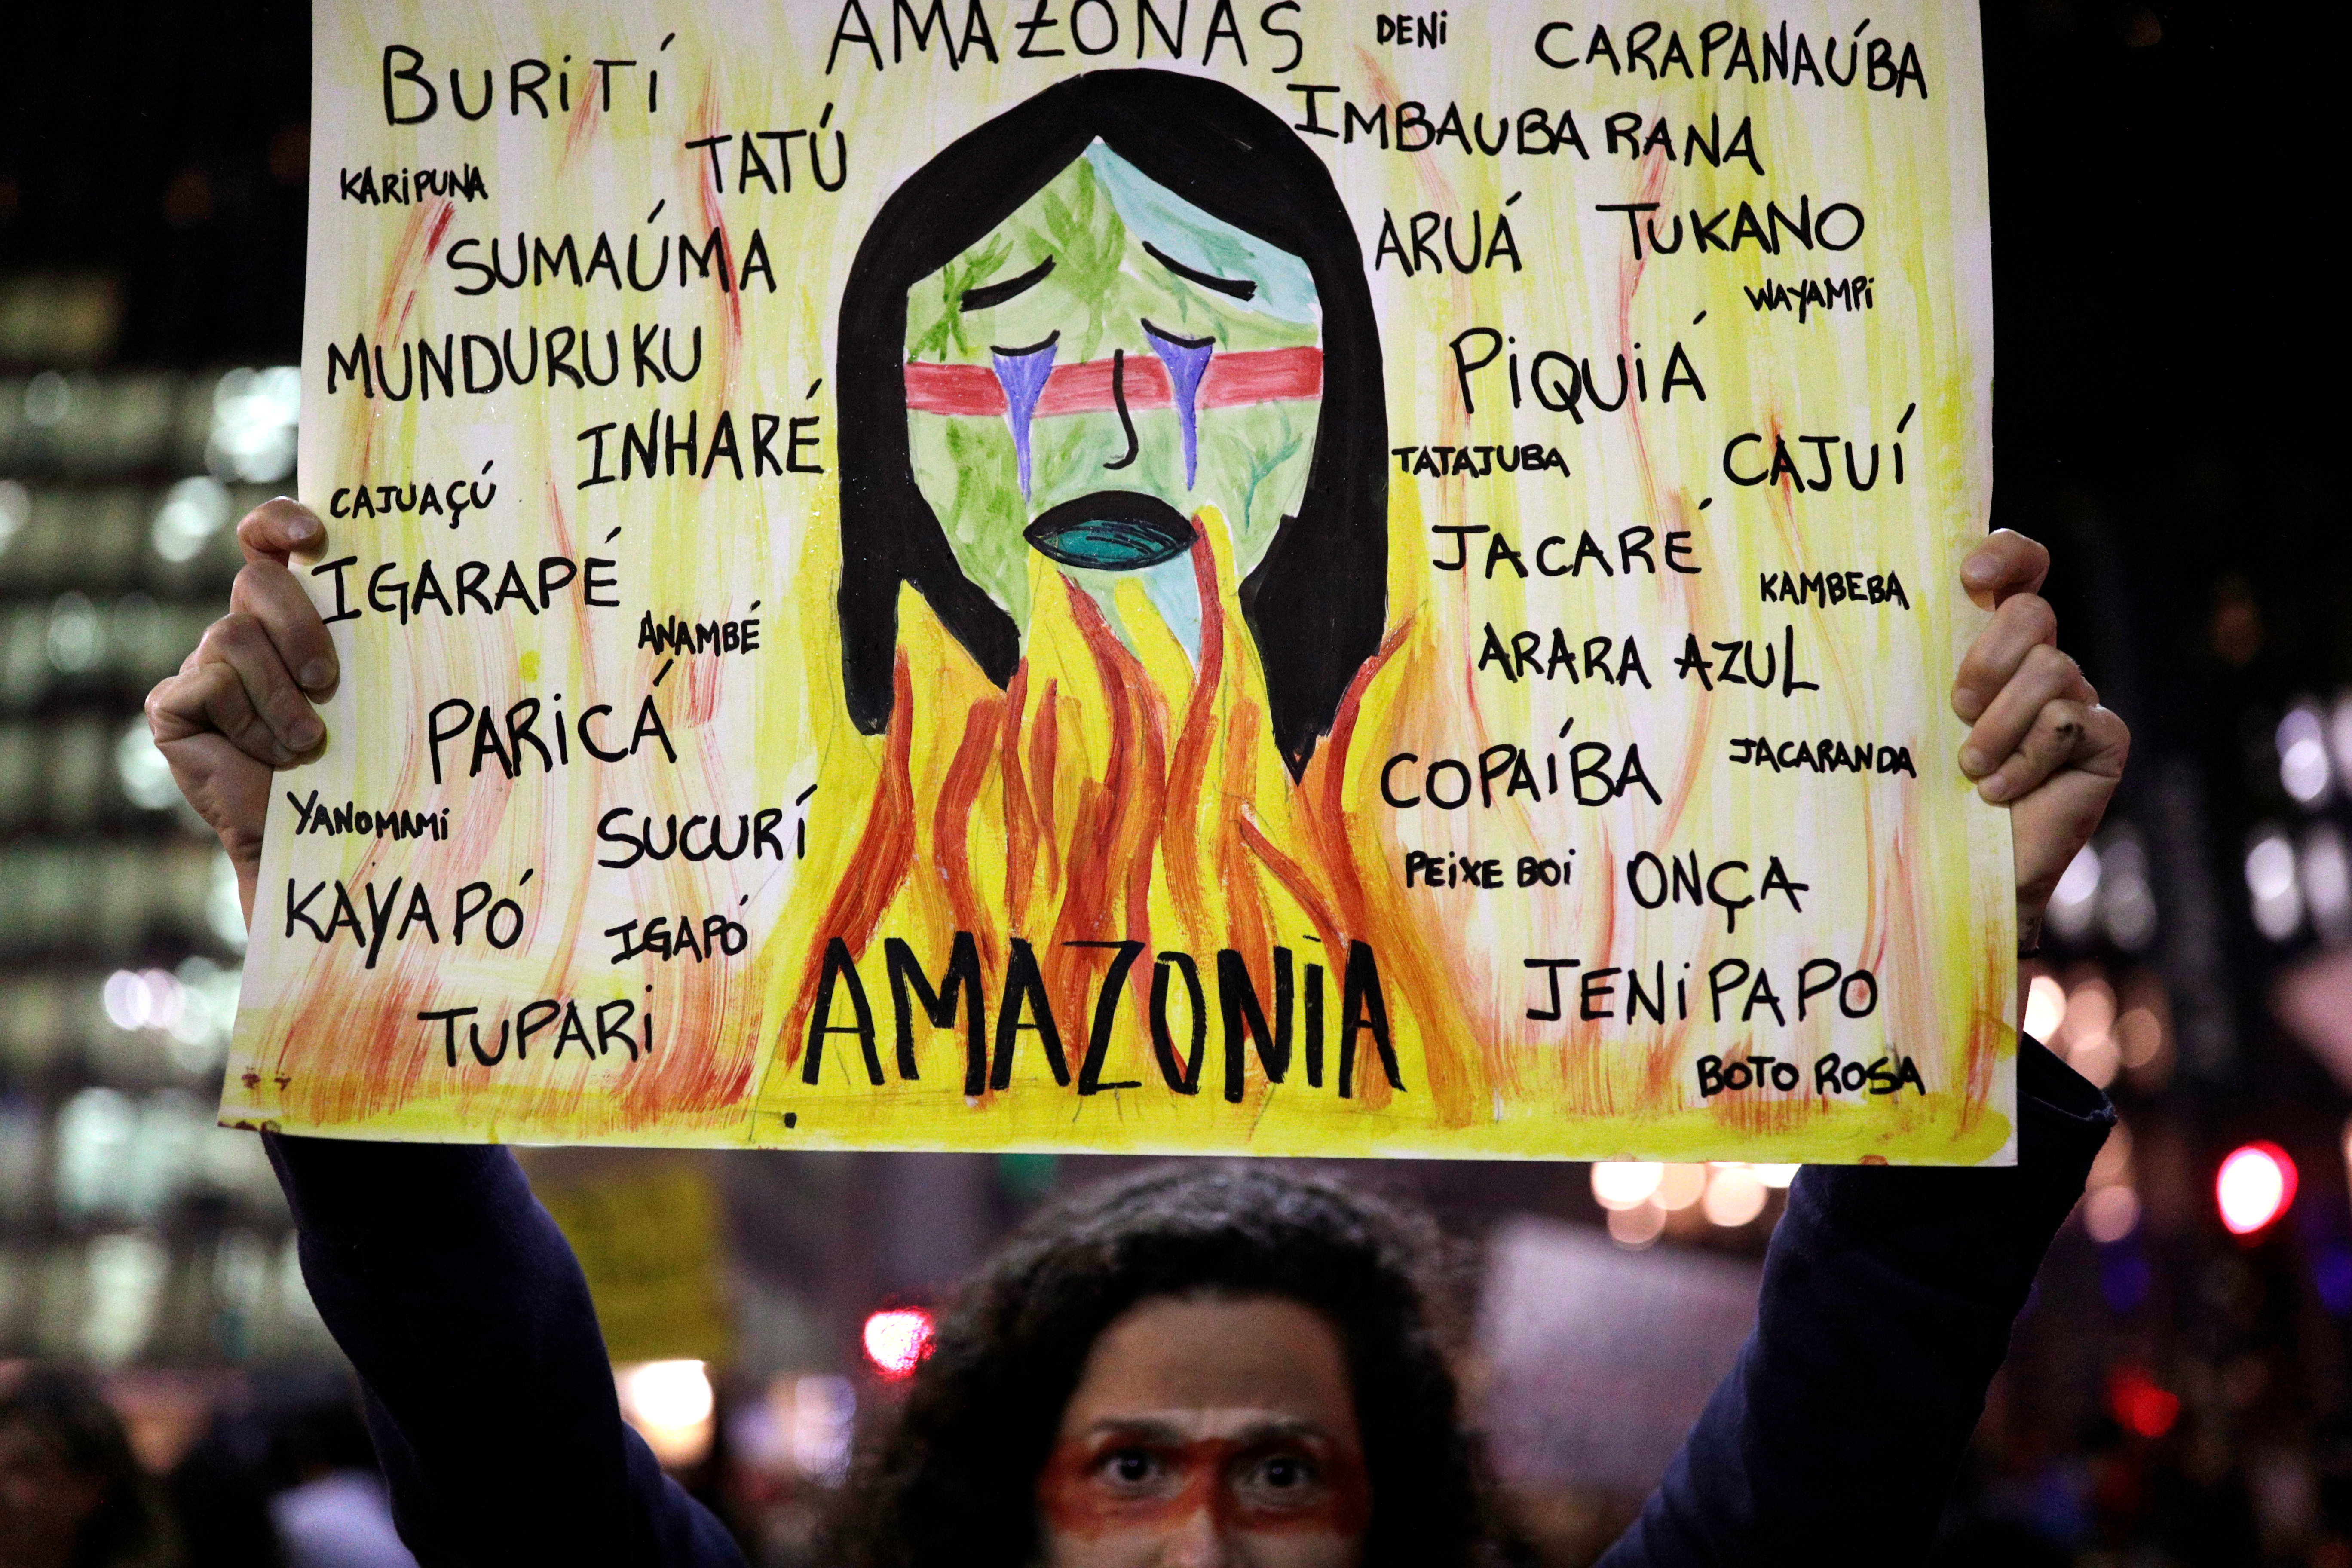 AMAZONAS
BURITÍ
TATÚ
KARIPUNA
SUMAÚMA
MUNDURUKU
INHARÉ
CAJUAÇÚ
IGARAPÉ
ANAMBÉ
PARICÁ
YANOMAMI
SUCURÍ
KAYAPÓ
IGAPÓ
TUPARI
DENI
CARAPANAÚBA
IMBAUBA RANA
ARUÁ
TUKANO
WAYAMPI
PIQUIÁ
TATAJUBA
CAJUÍ
JACARÉ
KAMBEBA
ARARA AZUL
COPAÍBA
JACARANDA
PEIXE BOI
ONÇA
JENIPAPO
BOTO ROSA
AMAZONIA